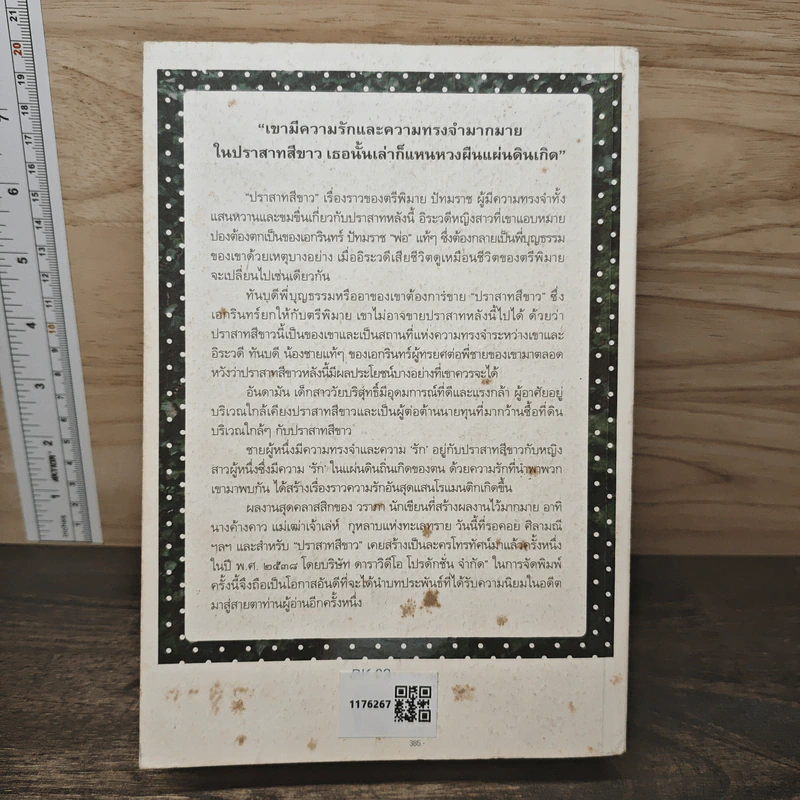 “เขามีความรักและความทรงจำมากมาย
ในปราสาทสีขาว เธอนั้นเล่าก็แหนหวงผืนแผ่นดินเกิด”
“ปราสาทสีขาว” เรื่องราวของตรีพิมาย ปัทมราช ผู้มีความทรงจำทั้ง
แสนหวานและขมขื่นเกี่ยวกับปราสาทหลังนี้ อิระวดีหญิงสาวที่เขาแอบหมาย
ปองต้องตกเป็นของเอกรินทร์ ปัทมราช “พ่อ” แท้ๆ ซึ่งต้องกลายเป็นพี่บุญธรรม
ของเขาด้วยเหตุบางอย่าง เมื่ออิระวดีเสียชีวิตดูเหมือนชีวิตของตรีพิมาย
จะเปลี่ยนไปเช่นเดียวกัน
ทันบดีพี่บุญธรรมหรืออาของเขาต้องการขาย “ปราสาทสีขาว” ซึ่ง
เอกรินทร์ยกให้กับตรีพิมาย เขาไม่อาจขายปราสาทหลังนี้ไปได้ ด้วยว่า
ปราสาทสีขาวนี้เป็นของเขาและเป็นสถานที่แห่งความทรงจำระหว่างเขาและ
อิระวดี ทันบดี น้องชายแท้ๆ ของเอกรินทร์ผู้ทรยศต่อพี่ชายของเขามาตลอด
หวังว่าปราสาทสีขาวหลังนี้มีผลประโยชน์บางอย่างที่เขาควรจะได้
อันดามัน เด็กสาววัยบริสุทธิ์มีอุดมการณ์ที่ดีและแรงกล้า ผู้อาศัยอยู่
บริเวณใกล้เคียงปราสาทสีขาวและเป็นผู้ต่อต้านนายทุนที่มากว้านซื้อที่ดิน
บริเวณใกล้ๆ กับปราสาทสีขาว
ชายผู้หนึ่งมีความทรงจำและความ ‘รัก’ อยู่กับปราสาทสีขาวกับหญิง
สาวผู้หนึ่งซึ่งมีความ ‘รัก’ ในแผ่นดินถิ่นเกิดของตน ด้วยความรักที่นำพาพวก
เขามาพบกัน ได้สร้างเรื่องราวความรักอันสุดแสนโรแมนติกเกิดขึ้น
ผลงานสุดคลาสสิกของ วราภา นักเขียนที่สร้างผลงานไว้มากมาย อาทิ
นางค้างคาว แม่เฒ่าเจ้าเล่ห์ กุหลาบแห่งทะเลทราย วันนี้ที่รอคอย ศิลามณี
ฯลฯ และสำหรับ “ปราสาทสีขาว” เคยสร้างเป็นละครโทรทัศน์มาแล้วครั้งหนึ่ง
ในปี พ.ศ. ๒๕๓๘ โดยบริษัท ดาราวิดีโอ โปรดักชั่น จำกัด” ในการจัดพิมพ์
ครั้งนี้จึงถือเป็นโอกาสอันดีที่จะได้นำบทประพันธ์ที่ได้รับความนิยมในอดีต
มาสู่สายตาท่านผู้อ่านอีกครั้งหนึ่ง
1176267
385.-